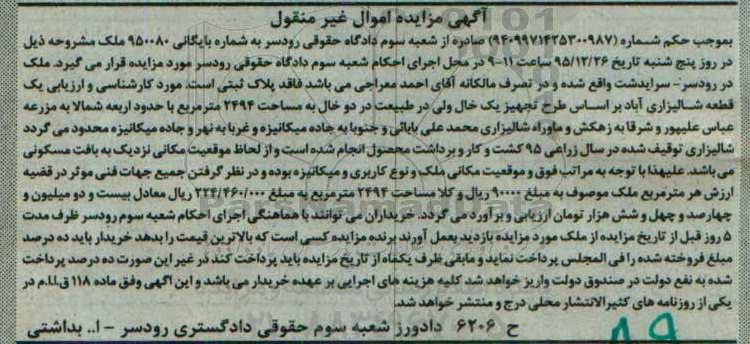 آگهی مزایده اموال غیر منقول
بموجب حکم شماره (۹۴۰۹۹۷۱۴۲۵۳۰۰۹۸۷) صادره از شعبه سوم دادگاه حقوقی رودسر به شماره بایگانی ۹۵۰۰۸۰ ملک مشروحه ذیل
در روز پنج شنبه تاریخ ۹۵/۱۲/۲۶ ساعت ۱۱-۹ در محل اجرای احکام شعبه سوم دادگاه حقوقی رودسر مورد مزایده قرار می گیرد. ملک
در رودسر- سرایدشت واقع شده و در تصرف مالکانه آقای احمد معراجی می باشد فاقد پلاک ثبتی است. مورد کارشناسی و ارزیابی یک
قطعه شالیزاری آباد بر اساس طرح تجهیز یک خال ولی در طبیعت در دو خال به مساحت ۲۴۹۴ مترمربع با حدود اربعه شمالا به مزرعه
عباس علیپور و شرقا به زهکش و ماوراء شالیزاری محمد علی بابائی و جنوبا به جاده میکانیزه و غربا به نهر و جاده میکانیزه محدود می گردد
شالیزاری توقیف شده در سال زراعی ۹۵ کشت و کار و برداشت محصول انجام شده است و از لحاظ موقعیت مکانی نزدیک به بافت مسکونی
می باشد. علیهذا با توجه به مراتب فوق و موقعیت مکانی ملک و نوع کاربری و میکانیزه بوده و در نظر گرفتن جمیع جهات فنی موثر در قضیه
ارزش هر مترمربع ملک موصوف به مبلغ ۹۰۰۰۰ ریال و کلا مساحت ۲۴۹۴ مترمربع به مبلغ ۲۲۴/۴۶۰/۰۰۰ ریال معادل بیست و دو میلیون و
چهارصد و چهل و شش هزار تومان ارزیابی و برآورد می گردد. خریداران می توانند با هماهنگی اجرای احکام شعبه سوم رودسر ظرف مدت
۵ روز قبل از تاریخ مزایده از ملک مورد مزایده بازدید بعمل آورند برنده مزایده کسی است که بالاترین قیمت را بدهد خریدار باید ده درصد
مبلغ فروخته شده را فی المجلس پرداخت نماید و مابقی ظرف یکماه از تاریخ مزایده باید پرداخت کند در غیر این صورت ده درصد پرداخت
شده به نفع دولت در صندوق دولت واریز خواهد شد کلیه هزینه های اجرایی بر عهده خریدار می باشد و این اگهی وفق ماده ۱۱۸ ق.ا.ا.م در
یکی از روزنامه های کثیرالانتشار محلی درج و منتشر خواهد شد.
ح ۶۲۰۶ دادورز شعبه سوم حقوقی دادگستری رودسر - ا.. بداشتی
۸۹